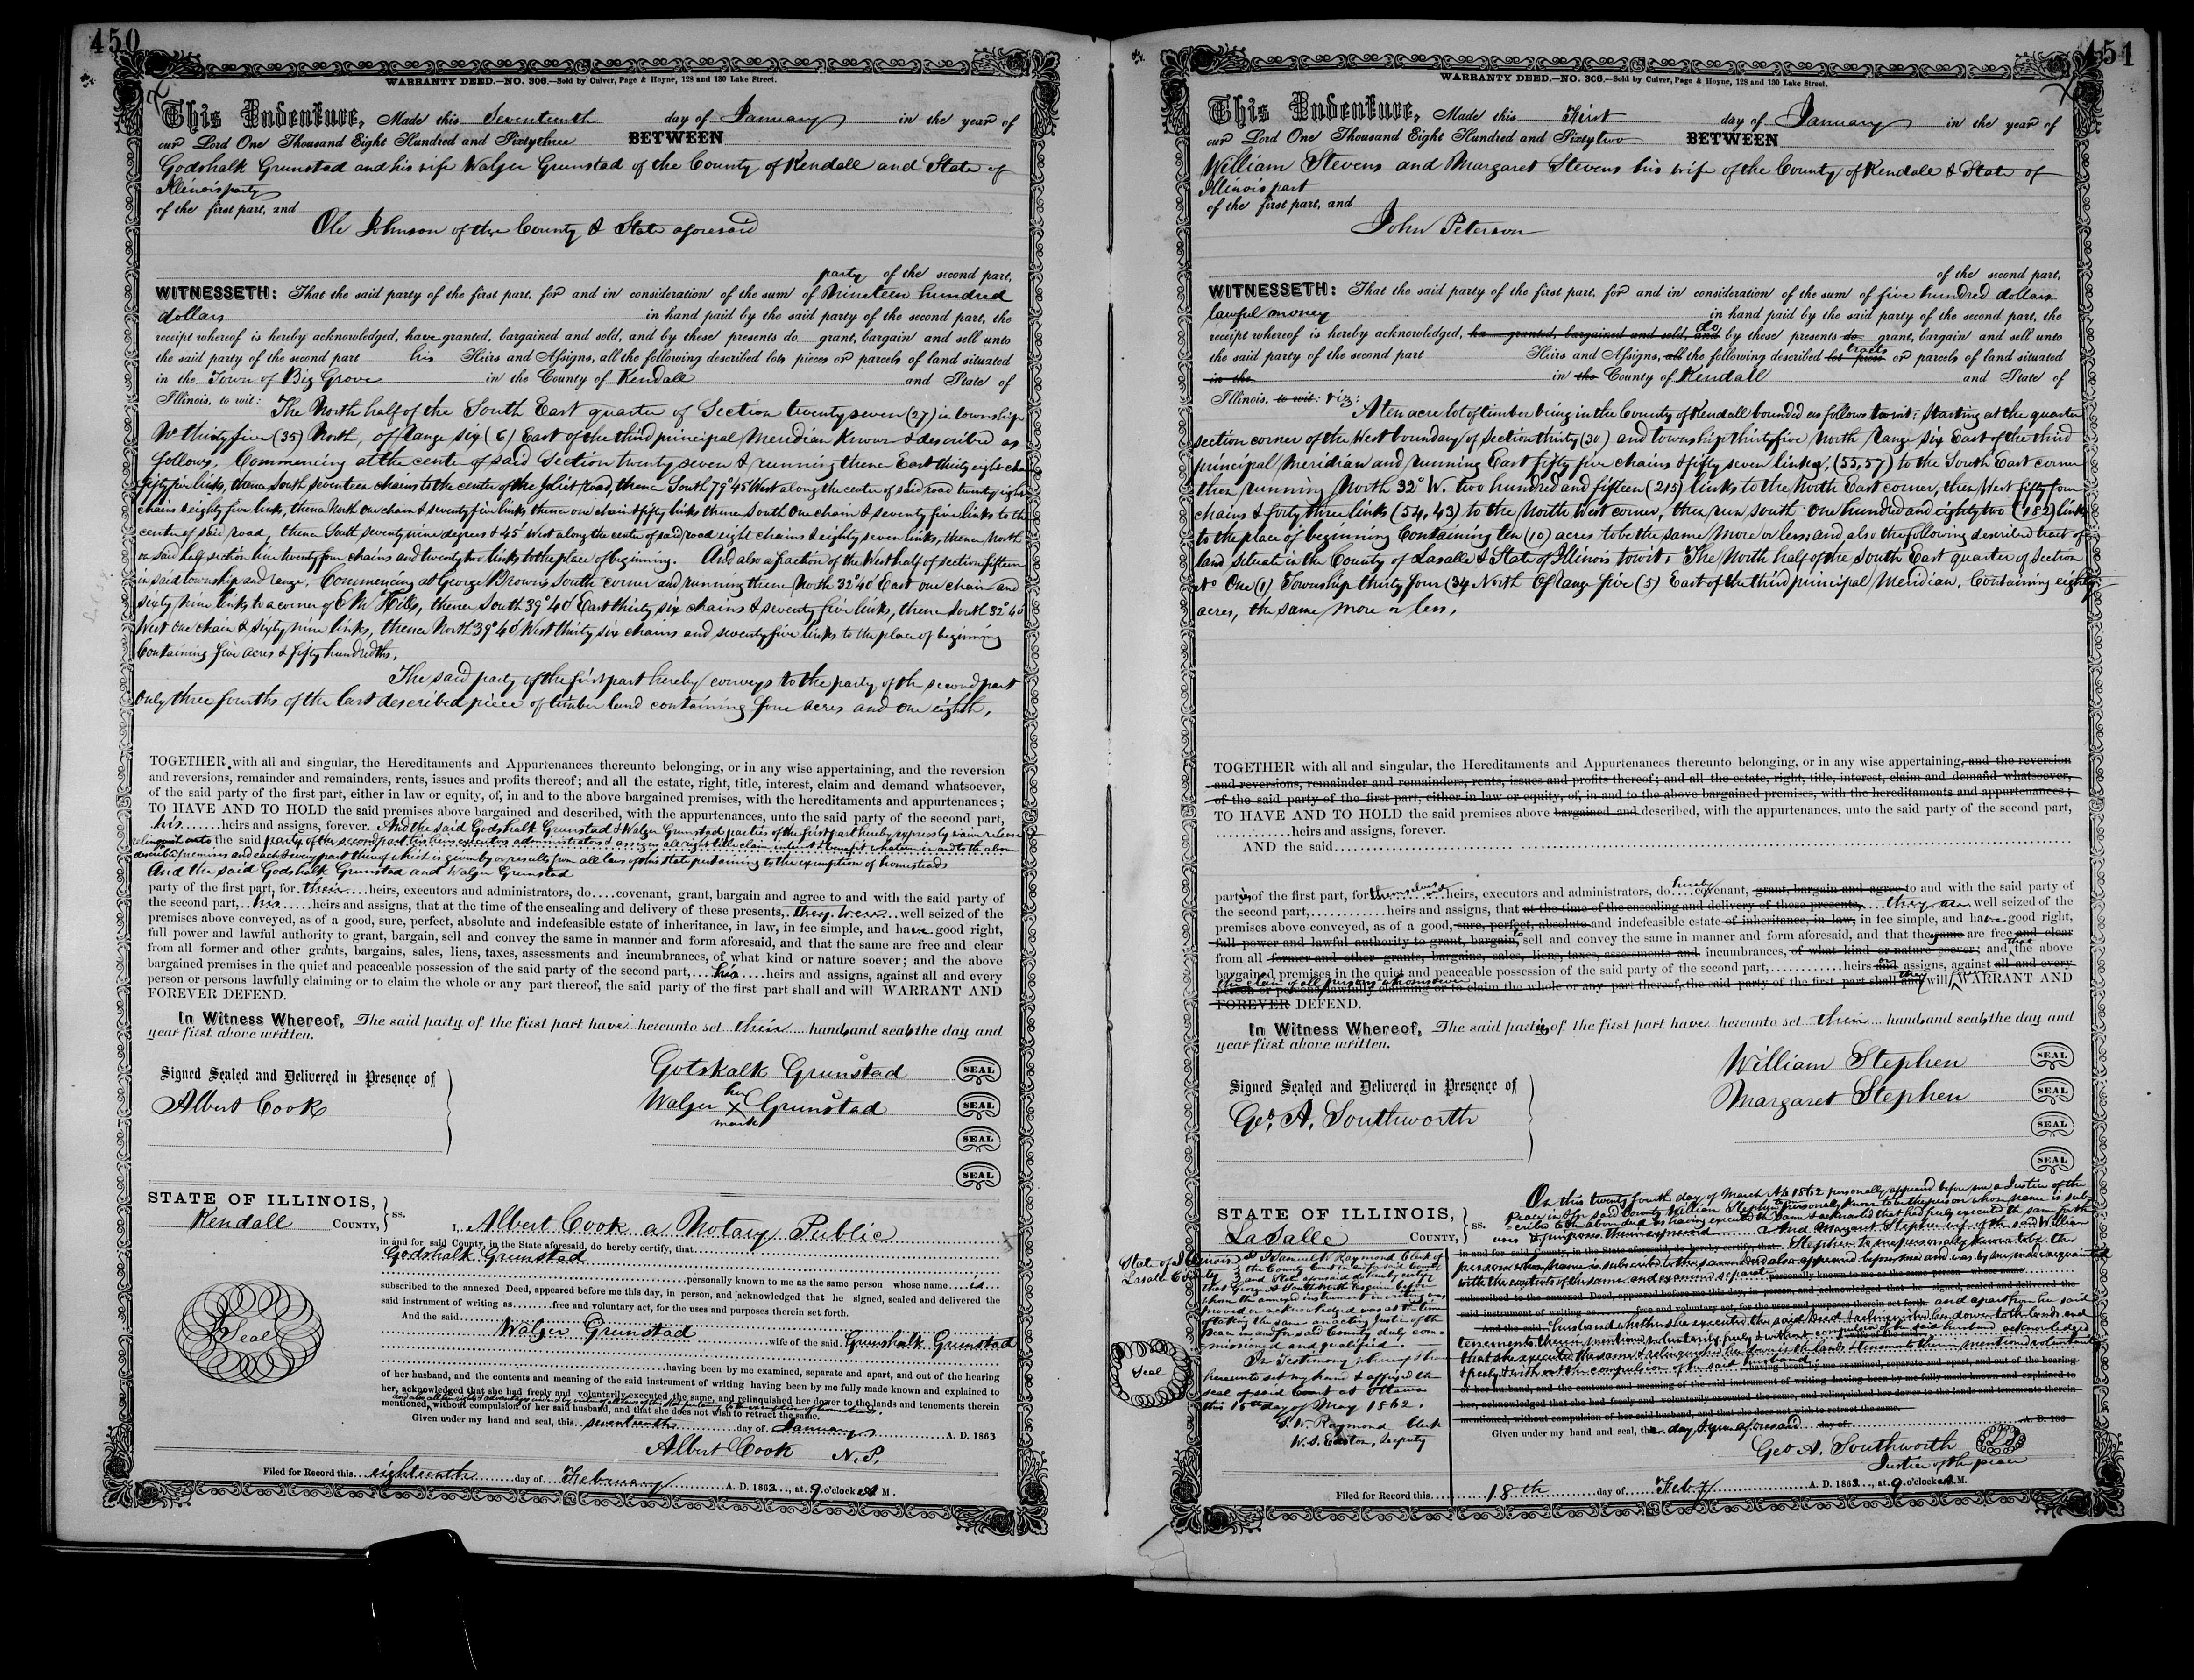 450
WARRANTY DEED.—NO. 306.—Sold by Culver, Page & Hoyne, 128 and 130 Lake Street.
This Indenture, Made this Seventeenth day of January in the year of
our Lord One Thousand Eight Hundred and Sixty three BETWEEN
Godshalk Grunstad and his wife Walger Grunstad of the County of Kendall and State of
Illinois party
of the first part, and
Ole Johnson of the County & State aforesaid
party of the second part,
WITNESSETH: That the said party of the first part, for and in consideration of the sum of Nineteen hundred
dollars in hand paid by the said party of the second part, the
receipt whereof is hereby acknowledged, have granted, bargained and sold, and by these presents do grant, bargain and sell unto
the said party of the second part his Heirs and Assigns, all the following described lots pieces or parcels of land situated
in the Town of Big Grove in the County of Kendall and State of
Illinois, to wit: The North half of the South East quarter of Section twenty seven (27) in township
No thirty five (35) North, of range six (6) East of the third principal Meridian Known & described as
follows, Commencing at the center of said Section twenty seven & running thence East thirty eight chains
fifty five links, thence South seventeen chains to the center of the Joliet road, thence South 79° 45' West along the center of said road twenty eight
chains & eighty five links, thence North one chain & seventy five links, thence one chain & fifty links thence South One chain & seventy five links to the
center of said road, thence South seventy nine degrees & 45' West along the center of said road eight chains & eighty seven links, thence North
on said half section line twenty four chains and twenty two links to the place of beginning. And also a fraction of the West half of section fifteen
in said township and range, Commencing at George Brown's South corner and running thence North 32° 40' East one chain and
sixty nine links to a corner of E M Hills, thence South 39° 40' East thirty six chains & seventy five links, thence South 32° 40'
West one chain & sixty nine links, thence North 39° 40' West thirty six chains and seventy five links to the place of beginning
Containing five acres & fifty hundredths.
The said party of the first part hereby conveys to the party of the second part
only three fourths of the last described piece of timber land containing four acres and one eighth,
TOGETHER with all and singular, the Hereditaments and Appurtenances thereunto belonging, or in any wise appertaining, and the reversion
and reversions, remainder and remainders, rents, issues and profits thereof; and all the estate, right, title, interest, claim and demand whatsoever,
of the said party of the first part, either in law or equity, of, in and to the above bargained premises, with the hereditaments and appurtenances;
TO HAVE AND TO HOLD the said premises above bargained and described, with the appurtenances, unto the said party of the second part,
his heirs and assigns, forever. And the said Godshalk Grunstad & Walger Grunstad parties of the first part hereby expressly waive release &
relinquish unto the said party of the second part his heirs executors administrators & assigns all right title claim interest & benefit whatever in and to the above
described premises and each & every part thereof which is given by or results from all laws of this state pertaining to the exemption of homesteads
And the said Godshalk Grunstad and Walger Grunstad
party of the first part, for their heirs, executors and administrators, do covenant, grant, bargain and agree to and with the said party of
the second part, his heirs and assigns, that at the time of the ensealing and delivery of these presents, they were well seized of the
premises above conveyed, as of a good, sure, perfect, absolute and indefeasible estate of inheritance, in law, in fee simple, and have good right,
full power and lawful authority to grant, bargain, sell and convey the same in manner and form aforesaid, and that the same are free and clear
from all former and other grants, bargains, sales, liens, taxes, assessments and incumbrances, of what kind or nature soever; and the above
bargained premises in the quiet and peaceable possession of the said party of the second part, his heirs and assigns, against all and every
person or persons lawfully claiming or to claim the whole or any part thereof, the said party of the first part shall and will WARRANT AND
FOREVER DEFEND.
In Witness Whereof, The said party of the first part have hereunto set their hands and seals the day and
year first above written.
Signed Sealed and Delivered in Presence of
Albert Cook
Gotskalk Grunstad SEAL
Walger her X mark Grunstad SEAL
SEAL
SEAL
STATE OF ILLINOIS,
Kendall COUNTY, ss.
I, Albert Cook a Notary Public
in and for said County, in the State aforesaid, do hereby certify, that
Godshalk Grunstad
personally known to me as the same person whose name is
subscribed to the annexed Deed, appeared before me this day, in person, and acknowledged that he signed, sealed and delivered the
said instrument of writing as free and voluntary act, for the uses and purposes therein set forth.
And the said
Walger Grunstad wife of the said Grunshalk Grunstad
having been by me examined, separate and apart, and out of the hearing
of her husband, and the contents and meaning of the said instrument of writing having been by me fully made known and explained to
her, acknowledged that she had freely and voluntarily executed the same, and relinquished her dower to the lands and tenements therein
mentioned, without compulsion of her said husband, and that she does not wish to retract the same.
Given under my hand and seal, this seventeenth day of January A. D. 1863
Albert Cook N. P.
Seal
Filed for Record this eighteenth day of February A. D. 1863, at 9 o'clock A M.
451
WARRANTY DEED.—NO. 306.—Sold by Culver, Page & Hoyne, 128 and 130 Lake Street.
This Indenture, Made this First day of January in the year of
our Lord One Thousand Eight Hundred and Sixty two BETWEEN
William Stevens and Margaret Stevens his wife of the County of Kendall & State of
Illinois part
of the first part, and
John Peterson
of the second part,
WITNESSETH: That the said party of the first part, for and in consideration of the sum of five hundred dollars
lawful money in hand paid by the said party of the second part, the
receipt whereof is hereby acknowledged, ha granted, bargained and sold, and do by these presents do grant, bargain and sell unto
the said party of the second part Heirs and Assigns, all the following described lot piece tracts or parcels of land situated
in the in the County of Kendall and State of
Illinois, to wit: viz: A ten acre lot of timber being in the County of Kendall bounded as follows to wit: Starting at the quarter
section corner of the West boundary of Section thirty (30) and township thirty five North range six East of the third
principal Meridian and running East fifty five chains & fifty seven links, (55,57) to the South East corner
then running North 32° W. two hundred and fifteen (215) links to the North East corner, then West fifty four
chains & forty three links (54,43) to the North West corner, then run south one hundred and eighty two (182) links
to the place of beginning Containing ten (10) acres to be the same more or less, and also the following described tract of
land situate in the County of Lasalle & State of Illinois to wit: The North half of the South East quarter of Section
No One (1) Township thirty four (34) North Of range five (5) East of the third principal Meridian, Containing eighty
acres, the same more or less,
TOGETHER with all and singular, the Hereditaments and Appurtenances thereunto belonging, or in any wise appertaining, and the reversion
and reversions, remainder and remainders, rents, issues and profits thereof; and all the estate, right, title, interest, claim and demand whatsoever,
of the said party of the first part, either in law or equity, of, in and to the above bargained premises, with the hereditaments and appurtenances;
TO HAVE AND TO HOLD the said premises above bargained and described, with the appurtenances, unto the said party of the second part,
heirs and assigns, forever.
AND the said
parties of the first part, for themselves and heirs, executors and administrators, do hereby covenant, grant, bargain and agree to and with the said party of
the second part, heirs and assigns, that at the time of the ensealing and delivery of these presents, they are well seized of the
premises above conveyed, as of a good, sure, perfect, absolute and indefeasible estate of inheritance, in law, in fee simple, and have good right,
full power and lawful authority to grant, bargain, to sell and convey the same in manner and form aforesaid, and that the same are free and clear
from all former and other grants, bargains, sales, liens, taxes, assessments and incumbrances, of what kind or nature soever; and that the above
bargained premises in the quiet and peaceable possession of the said party of the second part, heirs and or assigns, against all and every
the claim of all persons whomsoever
person or persons lawfully claiming or to claim the whole or any part thereof, the said party of the first part shall and they will WARRANT AND
FOREVER DEFEND.
In Witness Whereof, The said parties of the first part have hereunto set their hands and seals the day and
year first above written.
Signed Sealed and Delivered in Presence of
Geo. A. Southworth
William Stephen SEAL
Margaret Stephen SEAL
SEAL
SEAL
STATE OF ILLINOIS,
LaSalle COUNTY, ss.
On this twenty fourth day of March AD 1862 personally appeared before me a Justice of the
Peace in & for said County William Stephen
And Margaret Stephen wife of the said William
in and for said County, in the State aforesaid, do hereby certify, that Stephen to me personally known to be the
personally known to me as the same person whose name
subscribed to the annexed Deed, appeared before me this day, in person, and acknowledged that he signed, sealed and delivered the
said instrument of writing as free and voluntary act, for the uses and purposes therein set forth. and apart from her said
having been by me examined, separate and apart, and out of the hearing
of her husband, and the contents and meaning of the said instrument of writing having been by me fully made known and explained to
her, acknowledged that she had freely and voluntarily executed the same, and relinquished her dower to the lands and tenements therein
mentioned, without compulsion of her said husband, and that she does not wish to retract the same.
Given under my hand and seal, the day & year aforesaid day of A. D. 186
Geo A. Southworth
Justice of the peace
State of Illinois
Lasalle County
I Samuel W Raymond Clerk of
the County Court in and for said County
and State aforesaid do hereby certify
that George A Southworth Esquire before
whom the annexed instrument in writing was
proved or acknowledged was at the time
of taking the same an acting Justice of the
Peace in and for said County duly com-
missioned and qualified.
In Testimony whereof I have
hereunto set my hand & affixed the
seal of said Court at Ottawa
this 15th day of May 1862.
S. W. Raymond Clerk
W. S. Easton, Deputy
Seal
Filed for Record this 18th day of Feby A. D. 1863, at 9 o'clock A. M.